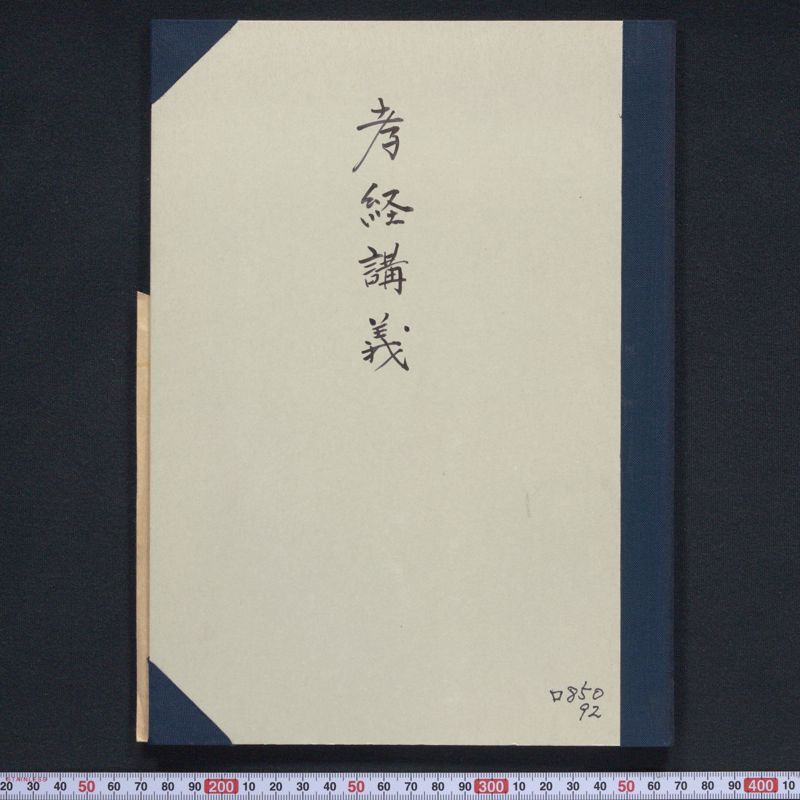 孝経講義
ロ850
92
STAINLESS
20 30 40 50 60 70 80 90 200 10 20 30 40 50 60 70 80 90 300 10 20 30 40 50 60 70 80 90 400 10